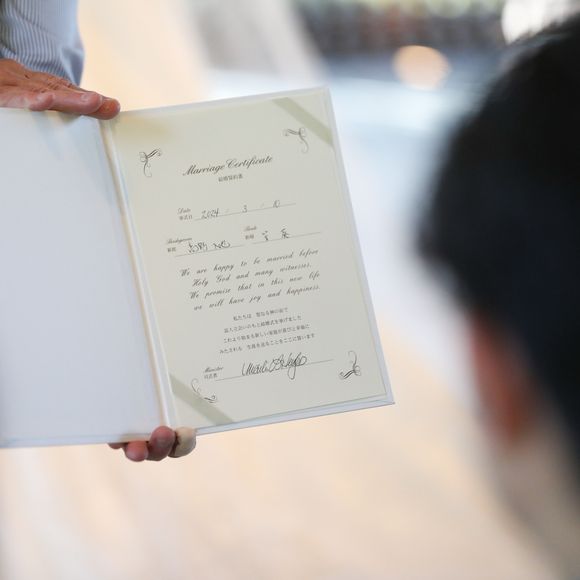 Marriage Certificate
結婚誓約書
Date
挙式日 2024 / 3 / 10
Bridegroom Bride
新郎 新婦
We are happy to be married before
Holy God and many witnesses.
We promise that in this new life
we will have joy and happiness.
私たちは 聖なる神の前で
証人立会いのもと結婚式を挙げました
これより始まる新しい家庭が喜びと幸福に
みたされる 生涯を送ることをここに誓います
Minister
司式者